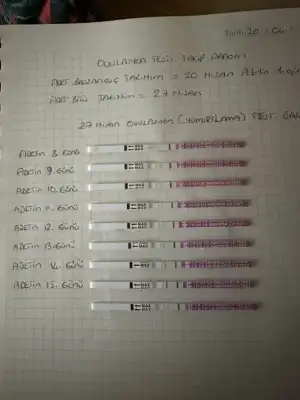 Tarih 20 / 04 /
OVULASYON TESTİ TAKİP
ADET BAŞLANGIÇ TARİHİM = 20 NİSAN
ADET BİTİŞ TARİHİM = 27 NİSAN
27 NİSAN OVULASYON (YUMURTLAMA) TEST
ADETİN 8. GÜNÜ
ADETİN 9. GÜNÜ
ADETİN 10. GÜNÜ
ADETİN 11. GÜNÜ
ADETİN 12. GÜNÜ
ADETİN 13. GÜNÜ
ADETİN 14. GÜNÜ
ADETİN 15. GÜNÜ
MAX
MAX
MAX
MAX
MAX
MAX
MAX
MAX
MAX